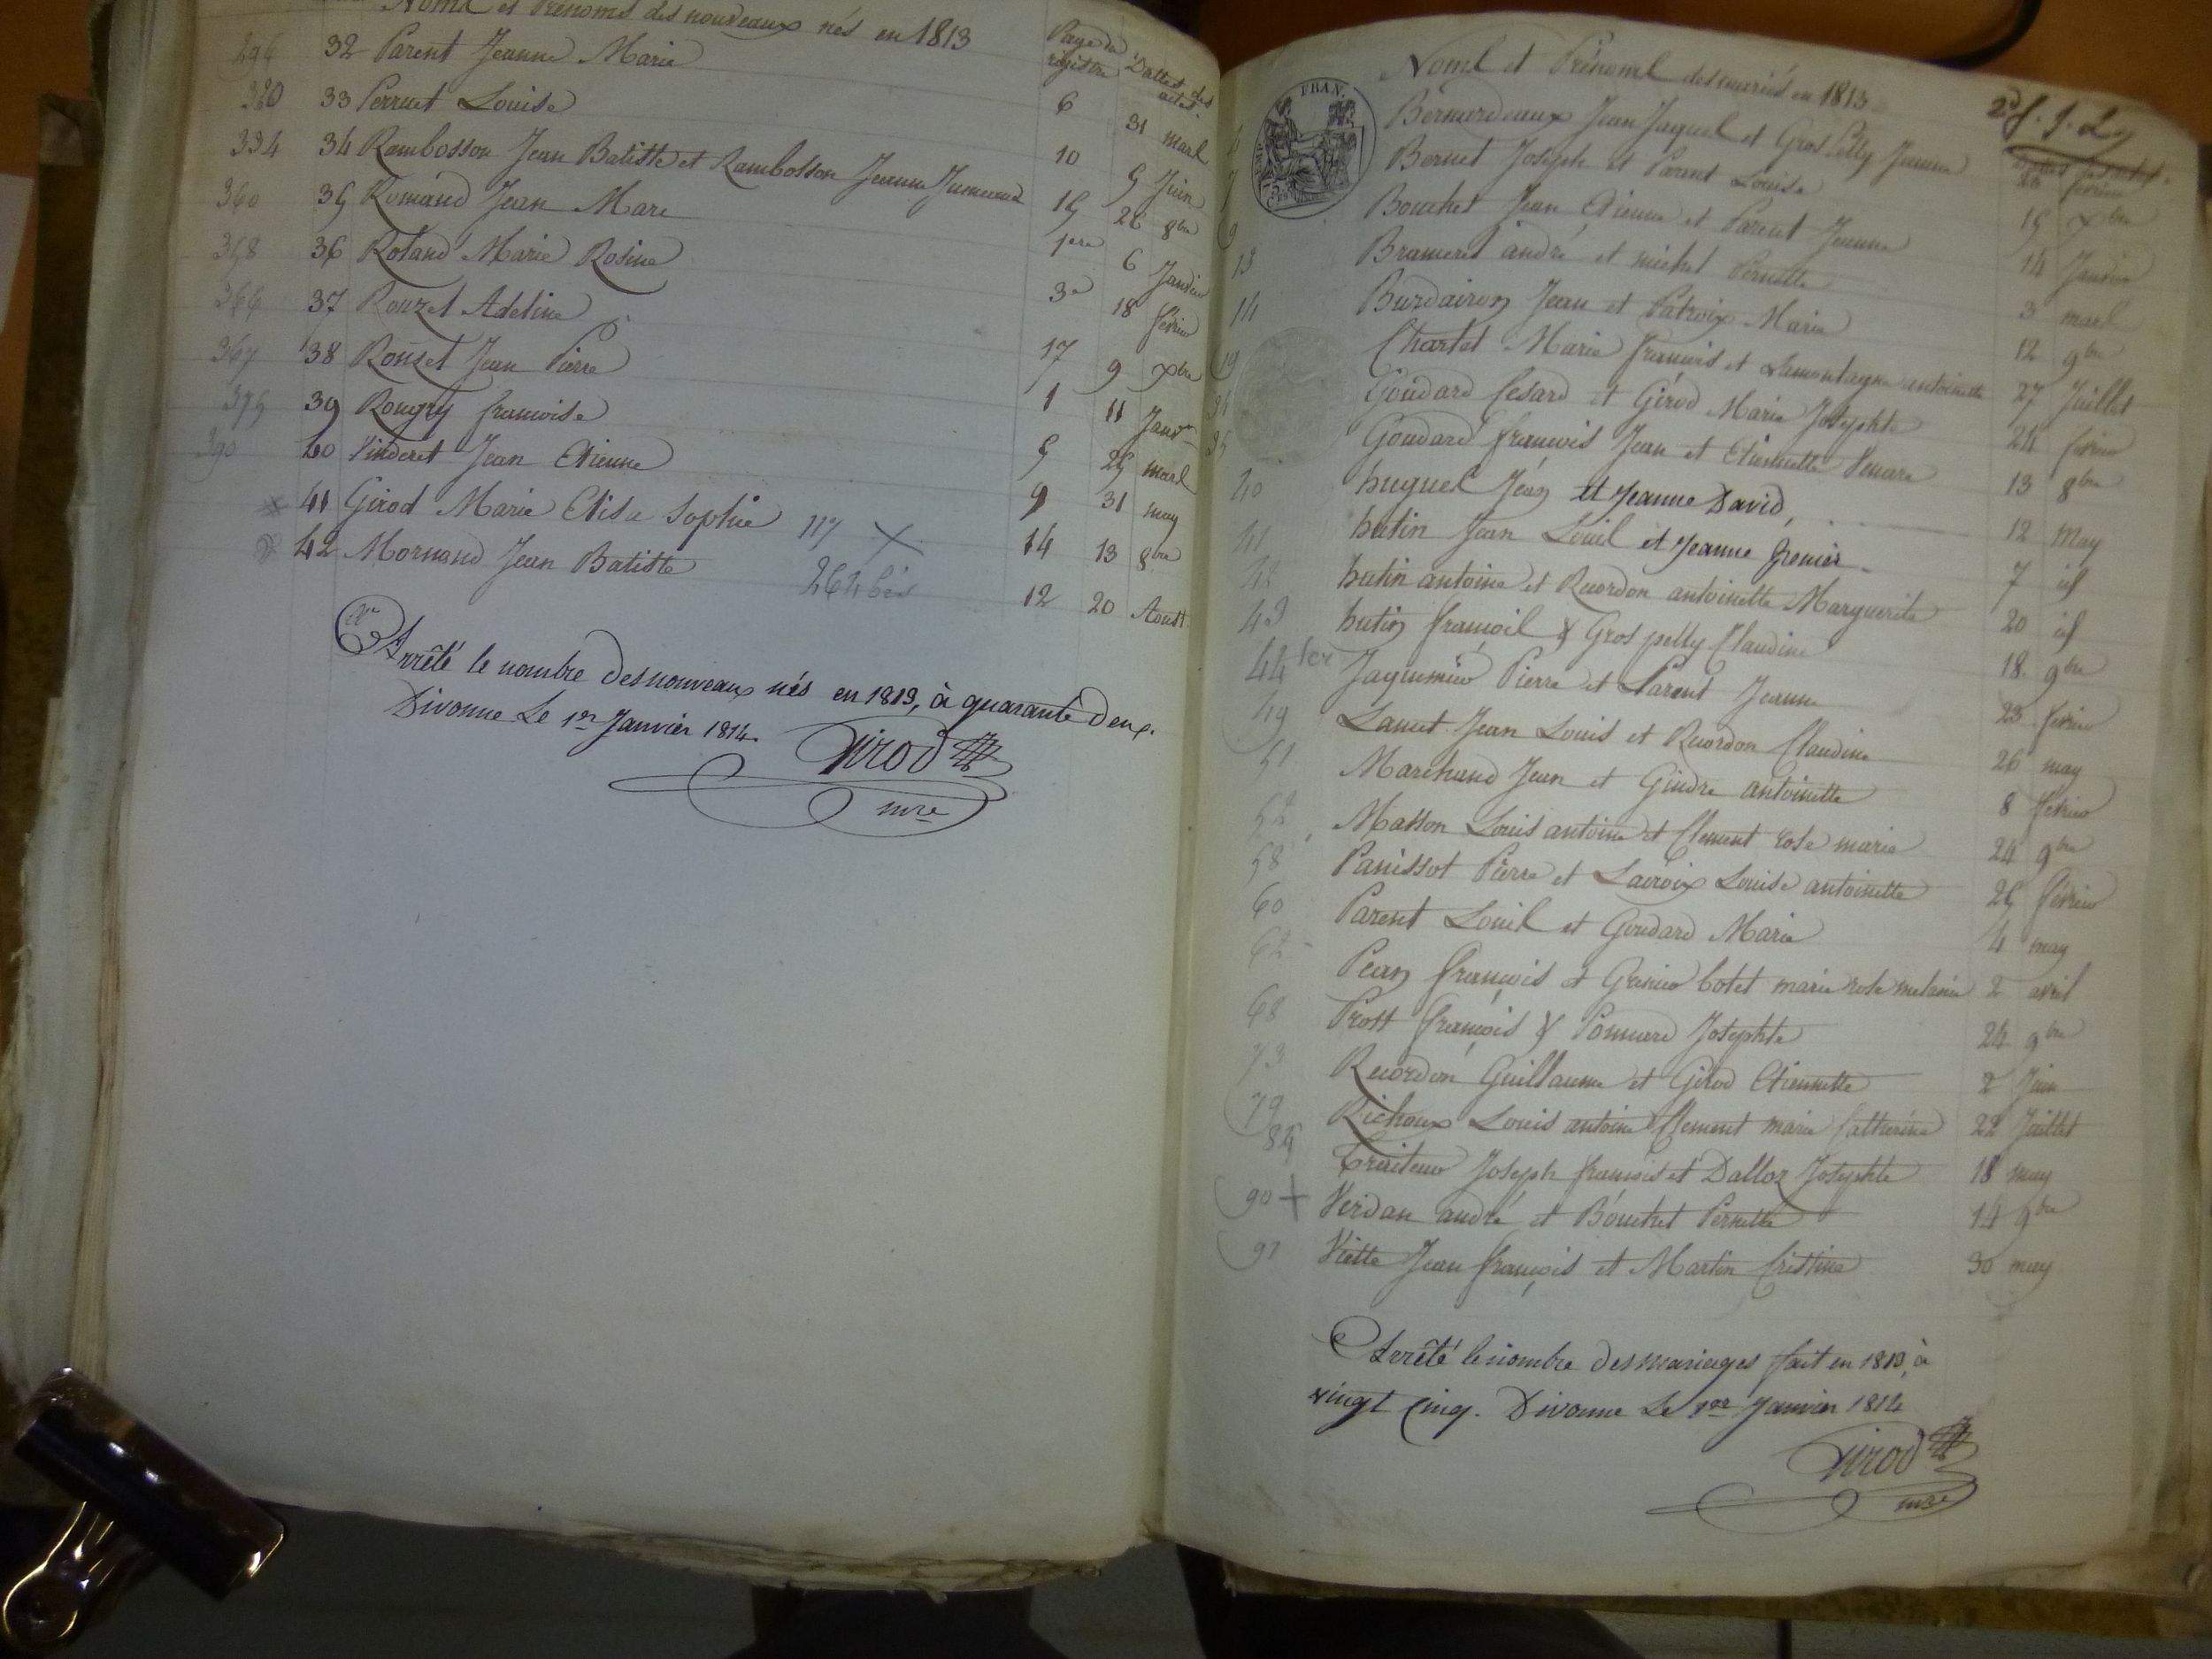 Noms et Prénoms des nouveaux nés en 1813
Page du registre
Dattes des actes.
296 32 Parent Jeanne Marie 6 31 mars
320 33 Perruet Louise 10 5 Juin
334 34 Rambosson Jean Batiste et Rambosson Jeanne Jumeaux 15 26 8bre
360 35 Romand Jean Marc 1ere 6 Janvier
358 36 Roland Marie Rosine 3e 18 février
366 37 Rouzet Adeline 17 9 xbre
367 38 Rouset Jean Pierre 1 11 Janvr
375 39 Rougey francoise 5 25 mars
390 40 Vinderet Jean Etienne 9 31 may
41 Girod Marie Elisa Sophie 117 X 14 13 8bre
42 Mornand Jean Batiste 264 bis 12 20 Aoust
Arrêté le nombre des nouveaux nés en 1813, à quarante deux.
Divonne Le 1er Janvier 1814.
Girod
mre
FRAN.
Noms et Prénoms des mariés en 1813
2d f. 
Bernardeaux Jean Jaques et Gros Pelly Jeanne février
Bernet Joseph et Parent Louise 15 xbre
9 Bouchet Jean Etienne et Parent Jeanne 14 Janvier
13 Brameret andré et michet Pernette 3 mars
14 Burdairon Jean et Patroix Marie 12 9bre
19 Chartet Marie francois et Lamontagne antoinette 27 Juillet
31 Goudard Cesard et Girod Marie Josephte 24 février
35 Goudard francois Jean et Etiennette Venare 13 8bre
40 hugues Jean et Jeanne David, 12 May
41 hutin Jean Louis et Jeanne Grenier 7 id
42 hutin antoine et Recordon antoinette Marguerite 20 id
43 hutin françois & Gros pelly Claudine 18 9bre
44 ter Jaquemier Pierre et Parent Jeanne 23 février
49 Lanet Jean Louis et Recordon Claudine 26 may
51 Marchand Jean et Gindre antoinette 8 février
52 Masson Louis antoine et Clement rose marie 24 9bre
58 Panissot Pierre et Lacroix Louise antoinette 25 février
60 Parent Louis et Goudard Marie 4 may
62 Pean françois et Grenier botet marie rose melanie 2 avril
68 Prost françois & Ponnard Josephte 24 9bre
73 Recordon Guillaume et Girod Etiennette 2 Juin
79 Richoux Louis antoine Clement marie Catherine 22 Juillet
84 Traiteur Joseph francois et Dalloz Josephte 18 may
90 + Verdan andré et Bouchet Pernette 14 9bre
91 Viette Jean françois et Martin Cristine 30 may
Arrêté le nombre des mariages fait en 1813, à
vingt cinq. Divonne Le 1er Janvier 1814
Girod
mre